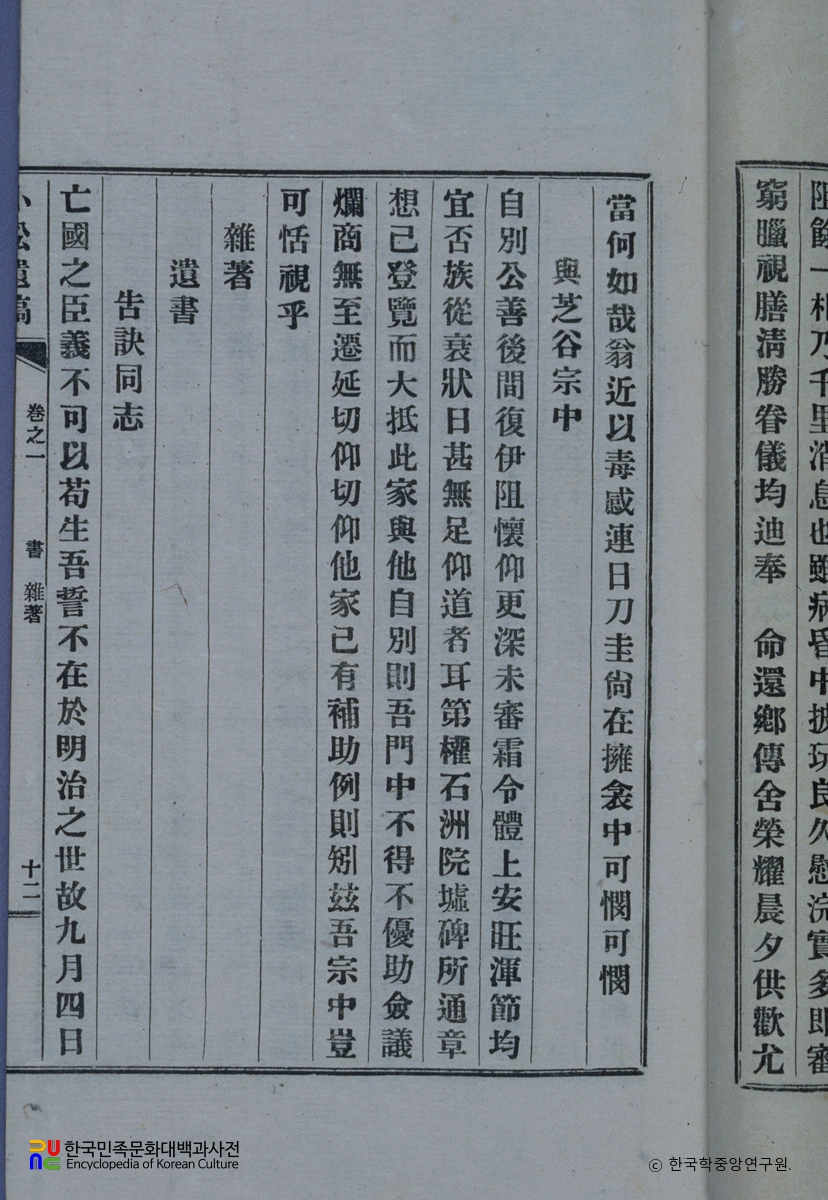 阻餘一札乃千里消息也雖病昏中披玩良久慰浣實多即審
窮臘視膳清勝眷儀均迪奉 命還鄉傳舍榮耀晨夕供歡尤
當何如哉翁近以毒感連日刀圭尙在擁衾中可憫可憫
與芝谷宗中
自別公善後間復伊阻懷仰更深未審霜令體上安旺渾節均
宜否族從衰狀日甚無足仰道者耳第權石洲院墟碑所通章
想已登覽而大抵此家與他自別則吾門中不得不優助僉議
爛商無至遷延切仰切仰他家已有補助例則矧玆吾宗中豈
可恬視乎
雜著
遺書
告訣同志
亡國之臣義不可以苟生吾誓不在於明治之世故九月四日
小松遺稿 卷之一 書 雜著 十二
한국민족문화대백과사전
Encyclopedia of Korean Culture
© 한국학중앙연구원.